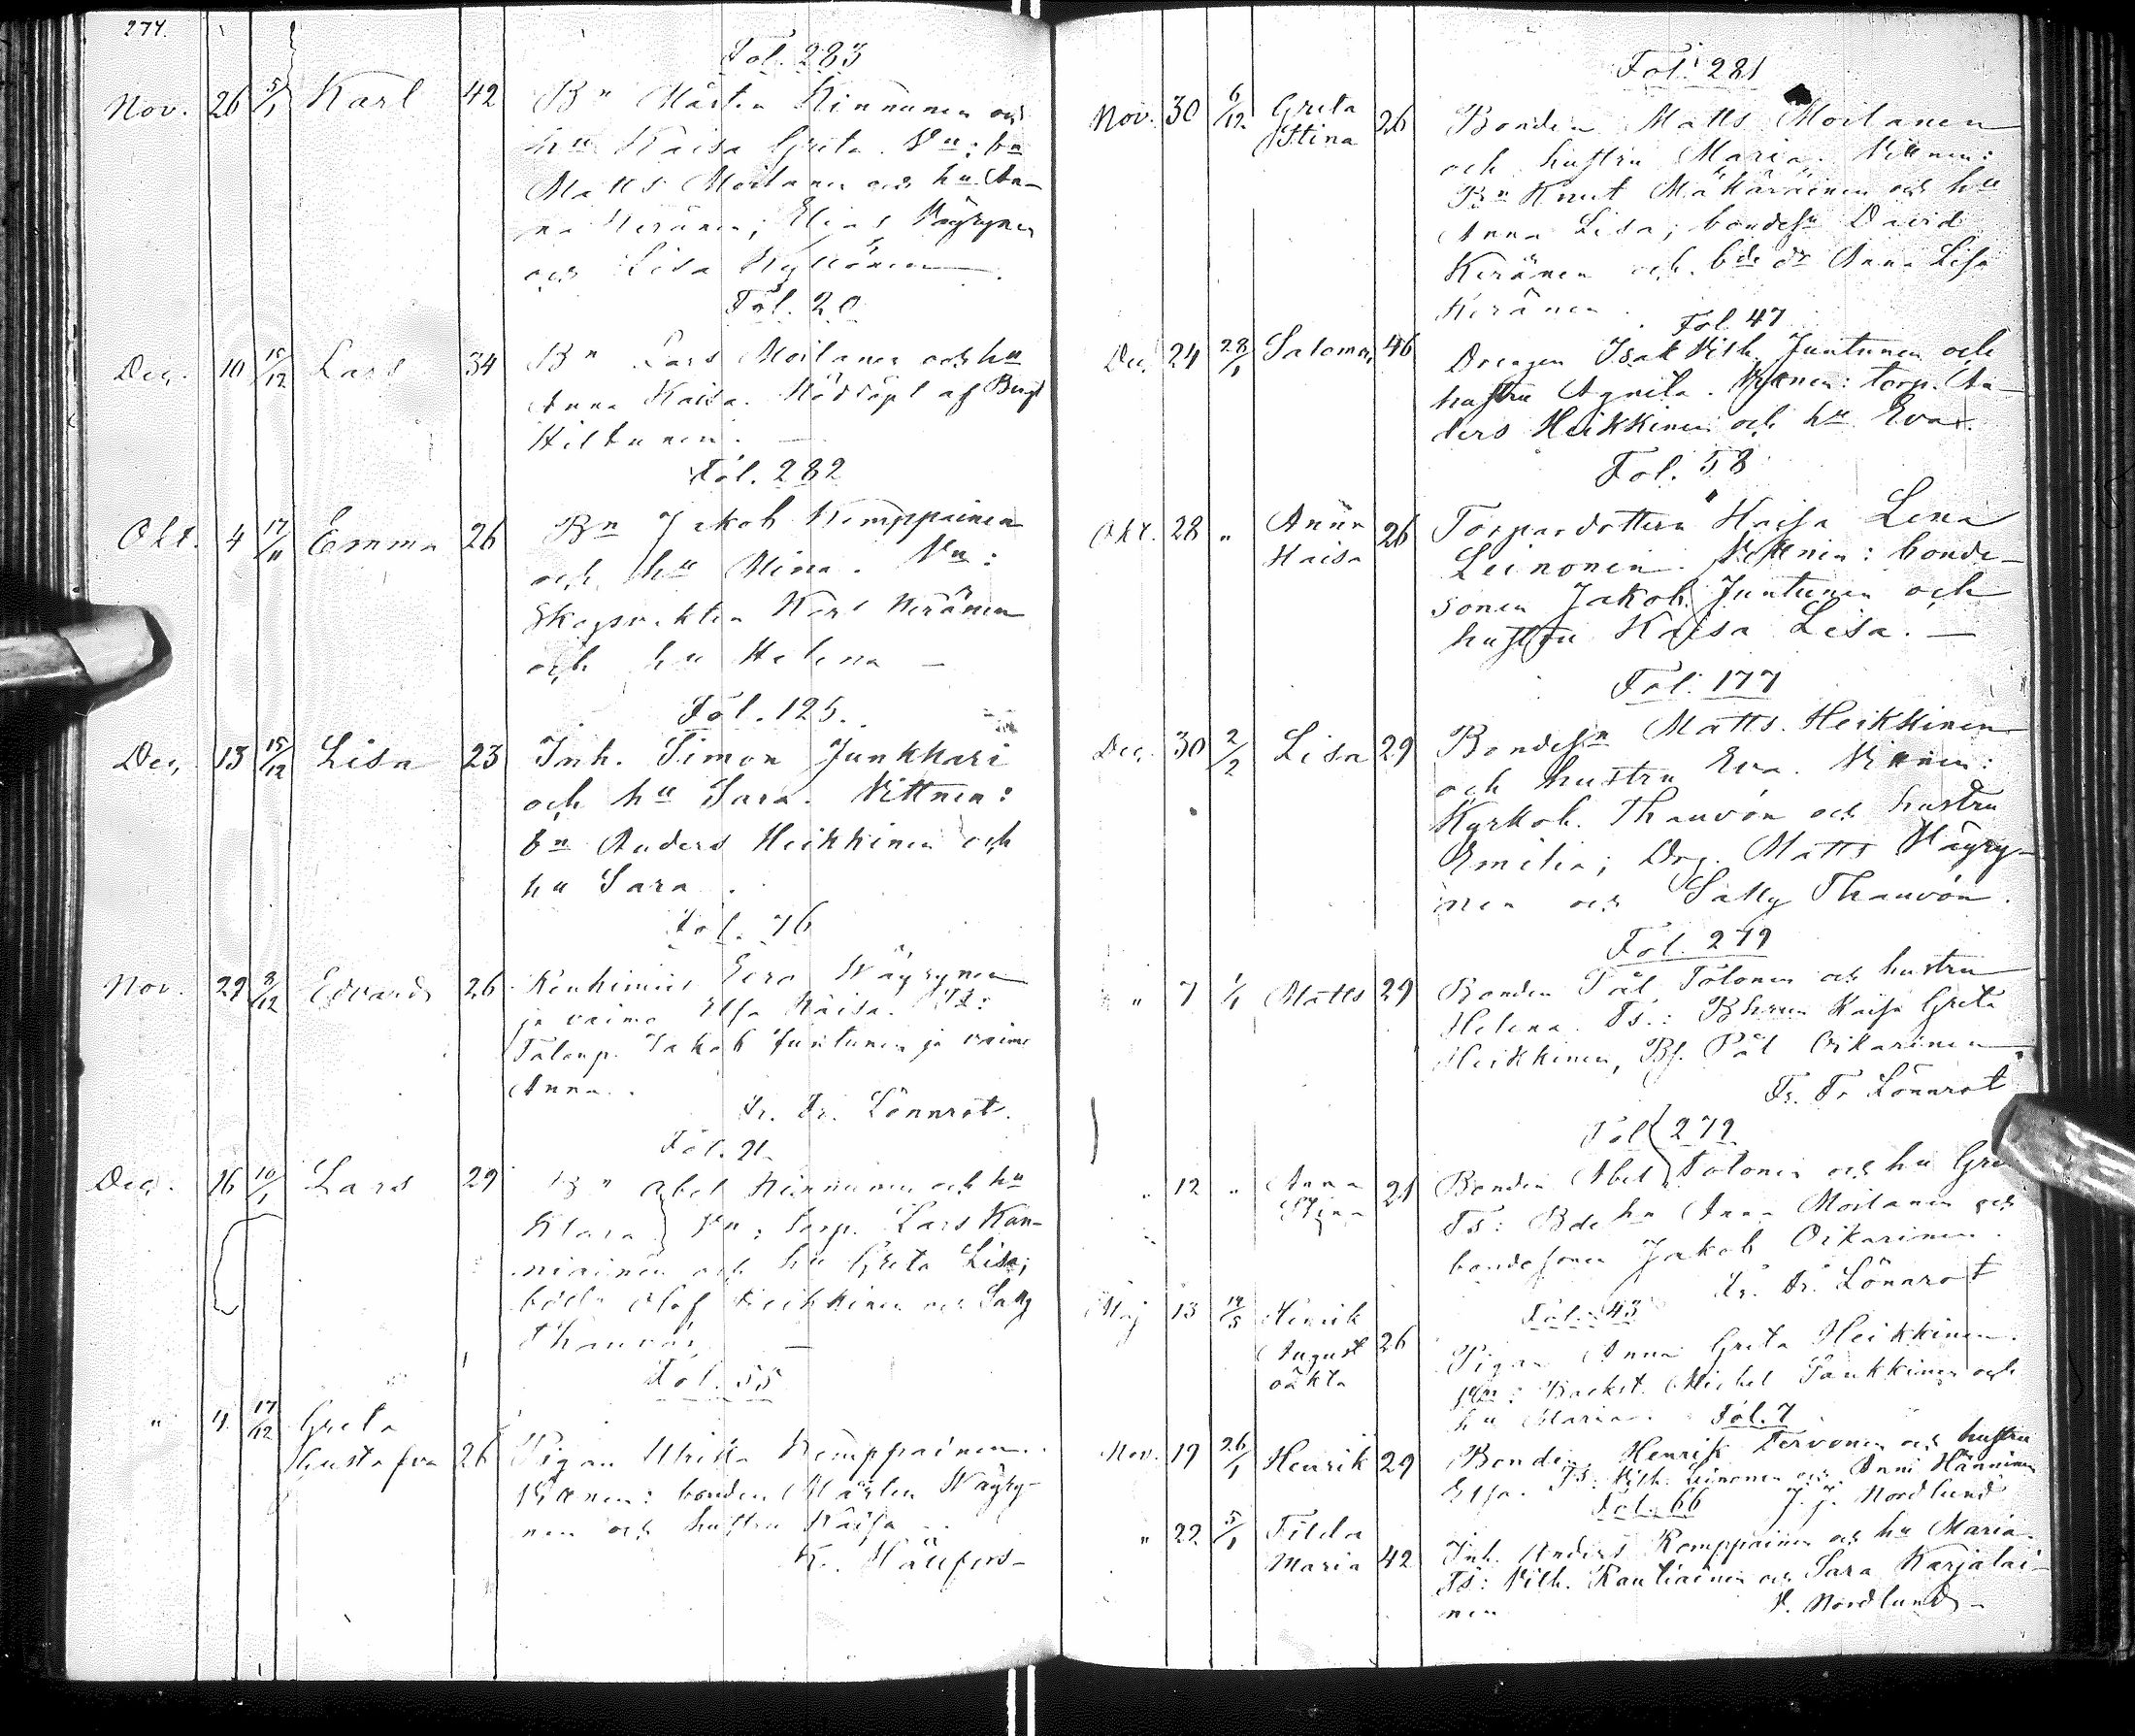 274.
Fol. 283
Nov. 26 5/1 Karl 42 Bn Mårten Kinnunen och
hu Kaisa Greta. Vn: bn
Matts Moilanen och hu An-
na Keränen; Elias Väyrynen
och Lisa Kyllönen
Fol. 20
Dec. 10 10/12 Lars 34 Bn Lars Moilanen och hu
Anna Kaisa. Nöddöpt af Bengt
Hiltunen. —
Fol. 282
Okt. 4 17/11 Emma 26 Bn Jakob Kemppainen
och hu Mina. Vn:
Skogsvakten Karl Keränen
och hu Helena —
Fol. 125.
Dec. 13 15/12 Lisa 23 Inh. Simon Junkkari
och hu Sara. Vittnen:
bn Anders Heikkinen och
hu Sara.
Fol. 76
Nov. 29 8/12 Edvard 26 Eero Wäyrynen
ja vaimo Elsa Kaisa. Td:
Talonp. Jakob Juntunen ja vaimo
Anna.
Fr. Fr. Lönnrot.
Fol. 21.
Dec. 16 10/1 Lars 29 Bn Abel Kinnunen och hu
Klara Vn: torp. Lars Kan-
niainen och hu Greta Lisa;
Olof Heikkinen och Sally
Thauvón —
Fol. 55
" 4 17/12 Greta
Gustafva 26 Pigan Ulrika Kemppainen.
Vittnen: bonden Mårten Wäyry-
nen och hustru Kaisa
K. Hällfors-
Fol. 281
Nov. 30 6/12 Greta
Stina 26 Bonden Matts Moilanen
och hustru Maria. Vittnen:
Bn Knut Mäkäräinen och hu
Anna Lisa; bondesn David
Keränen och bde dr Anna Lisa
Keränen.
Fol 47
Dec. 24 28/1 Salomon 46 Drengen Isak Vilh. Juntunen och
hustru Agneta. Vittnen: torp. An-
ders Heikkinen och hu Eva.
Fol. 58
Okt. 28 " Anna
Kaisa 26 Torpardottern Kaisa Lena
Leinonen. Vittnen: bonde-
sonen Jakob Juntunen och
hustru Kaisa Lisa. —
Fol. 177
Dec. 30 2/2 Lisa 29 Bondesn Matts Heikkinen
och hustru Eva. Vittnen:
Kyrkoh. Thauvón och hustru
Emilia; Drg. Matts Väyry-
nen och Sally Thauvón.
Fol. 279
" 7 1/1 Matts 29 Bonden Pål Tolonen och hustru
Helena. Ts.: Kaisa Greta
Heikkinen, Bs. Pål Oikarinen
Fr. Fr Lönnrot
Fol 279
" 12 " Anna
Stina 21 Bonden Abel Tolonen och hu
Ts: Bde hu Anna Moilanen och
bondesonen Jakob Oikarinen.
Fr. Fr. Lönnrot
Fol. 43
Maj 13 14/5 Henrik
August
oäkta 26 Pigan Anna Greta Heikkinen.
Vn: Backst. Michel Paukkinen och
hu Maria.
Fol. 7
Nov. 19 26/1 Henrik 29 Bonden Henrik Tervonen och hustru
Elsa. Ts: Vilh. Leinonen och Anni Hänninen
J. J. Nordlund
Fol. 66
" 22 5/1 Tilda
Maria 42 Inh. Anders Komppainen och hu Maria.
Ts: Vilh. Rautiainen och Sara Karjalai-
nen
J. Nordlund -